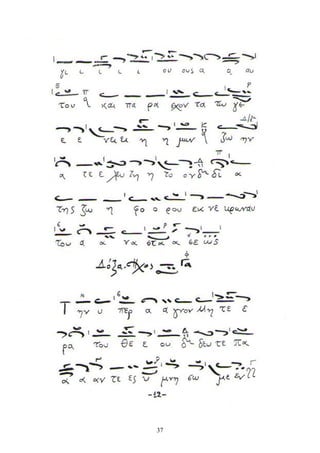 γι ι ι ι ι ου ουσ α α αυ
του και πα ρα σχον τα τω γε
ε ε νει ει η η μων ζω ην
α τε ε λευ τη η το ον δι α
της ζω η φο ο ρου εκ νε κρωναυ
του α α να στα α σε ως
Δόξα. Ηχος Γα
Την υ περ α α γνον Μη τε ε
ρα του Θε ε ου δευ τε πα
α α αν τε ες υ μνη σω με εν
-12-
37